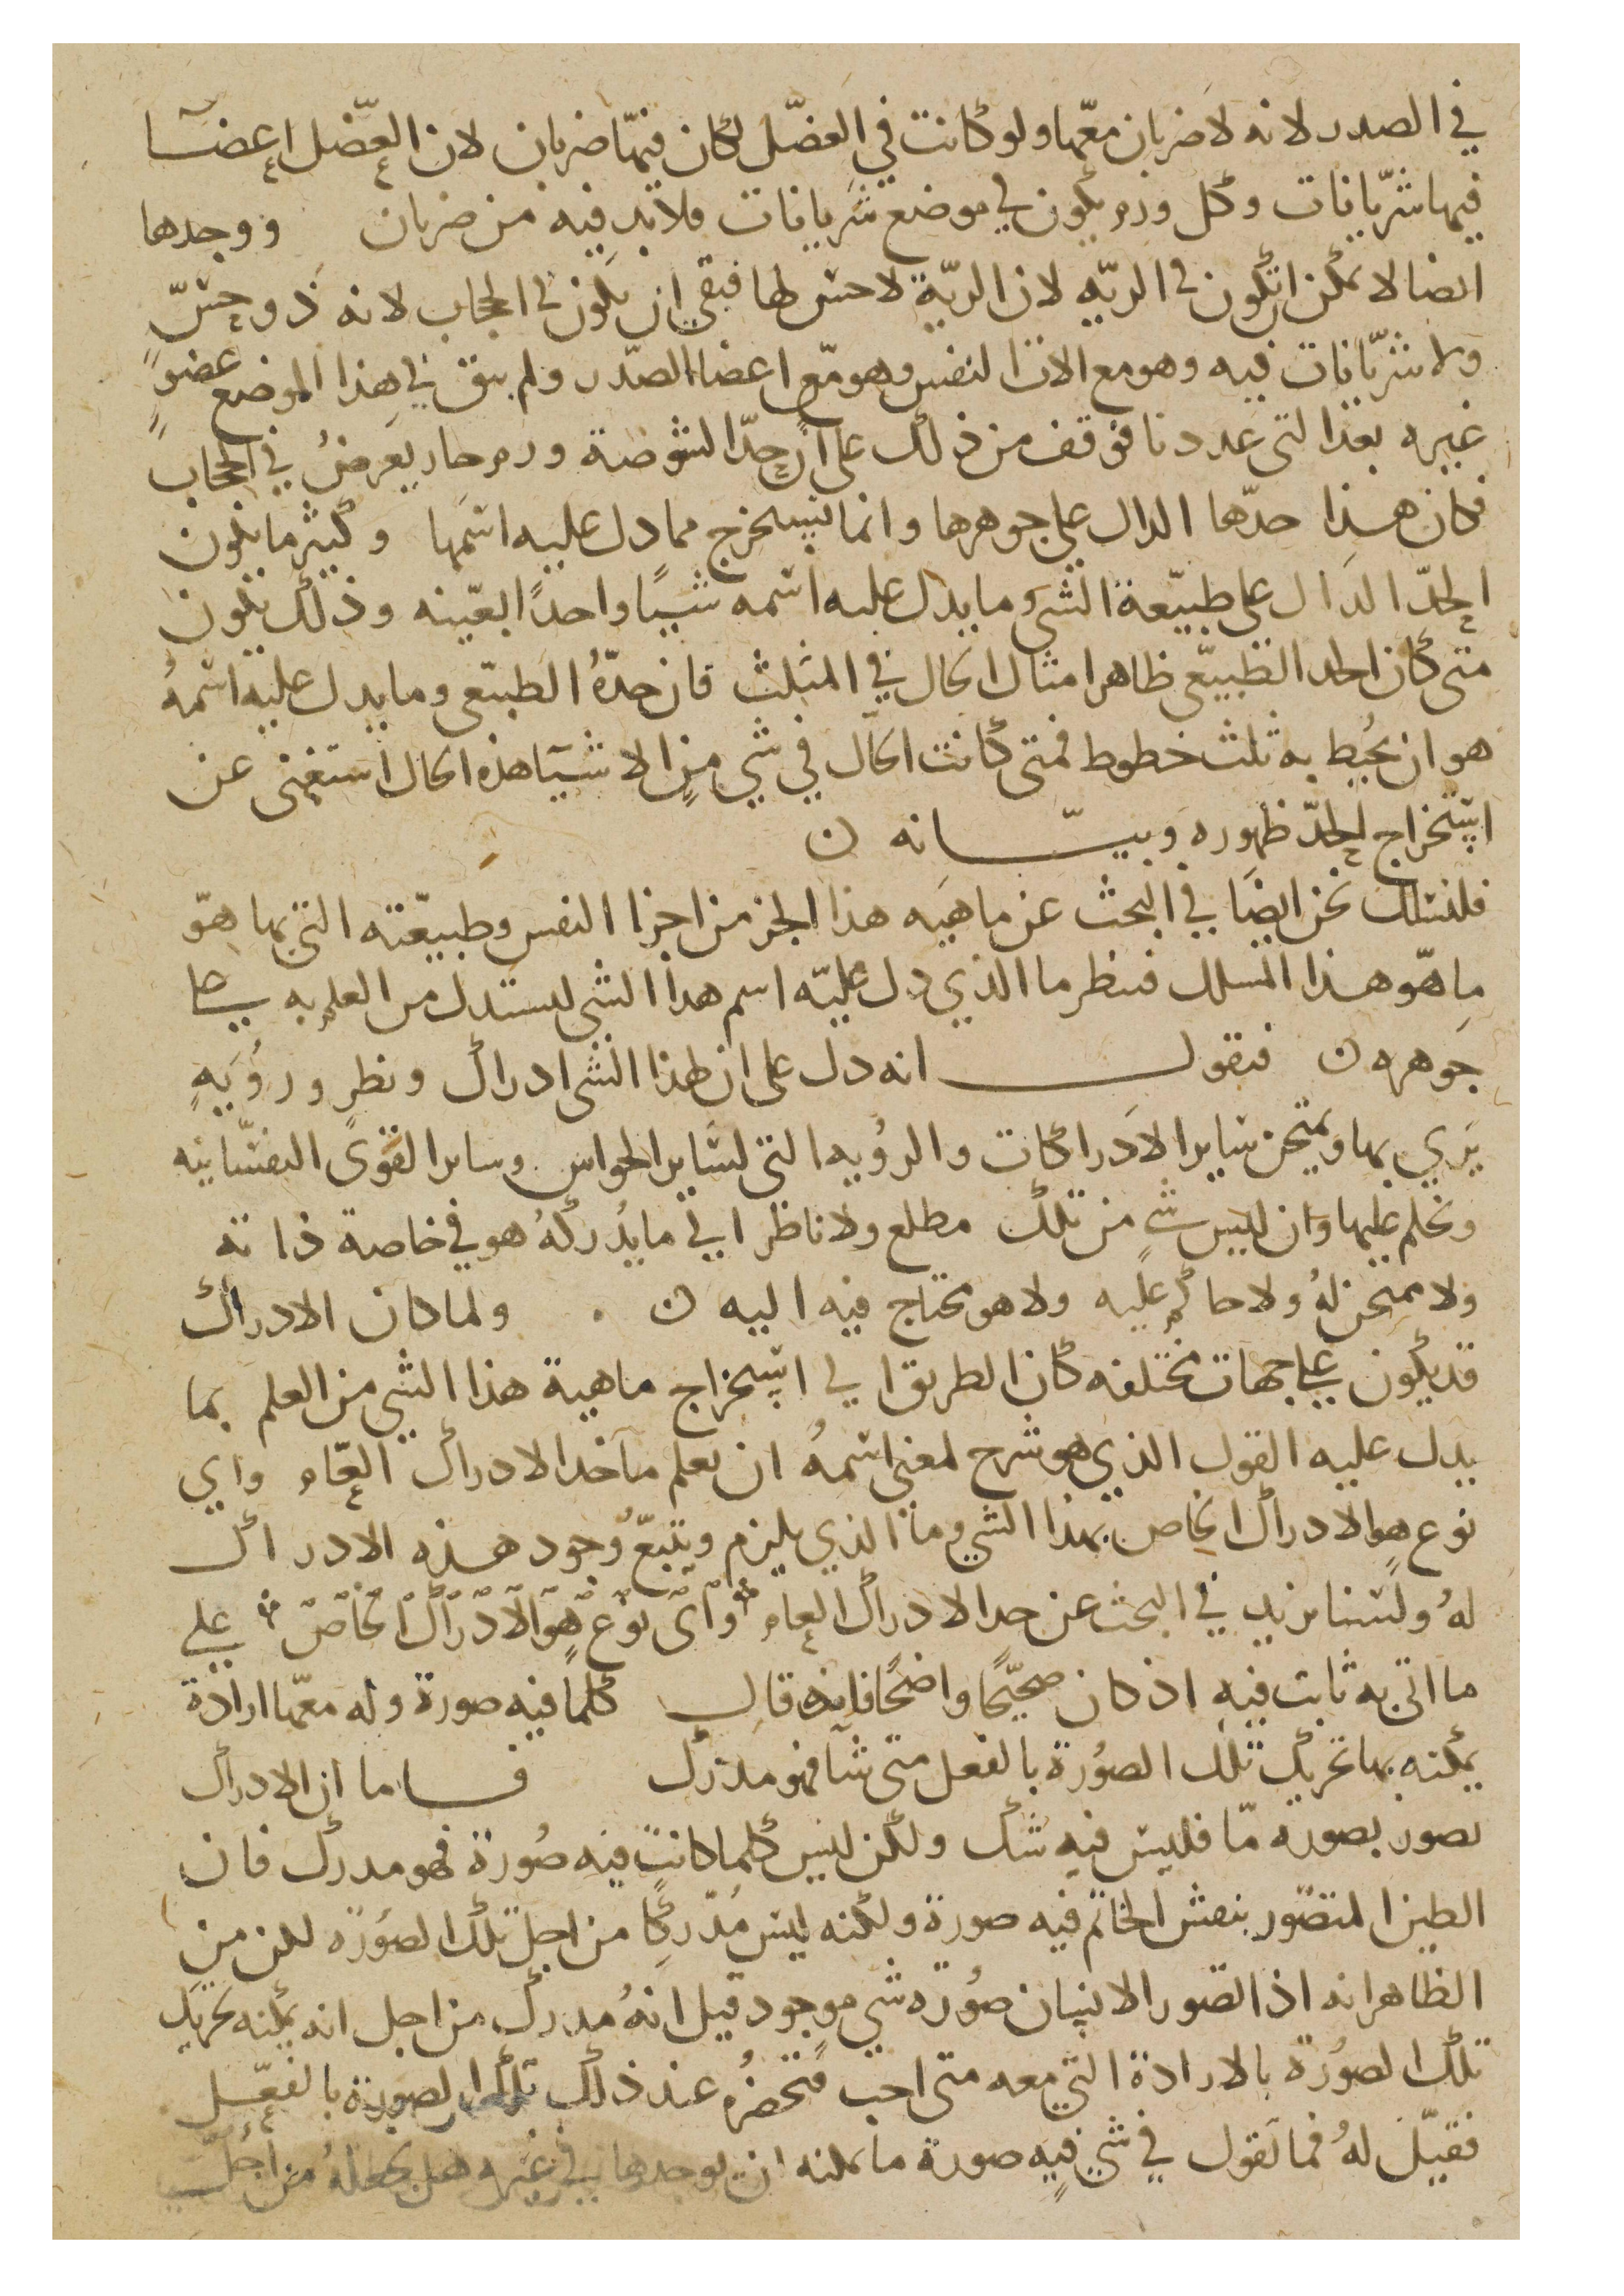 في الصدر لانه لا ضربان معها ولو كانت في العضل لكان فيها ضربان لان العضل اعضآ
فيها شريانات وكل ورم يكون في موضع شريانات فلا بد فيه من ضربان ووجدها
ايضا لا يمكن ان تكون في الريه لان الرية لا حس لها فبقي ان يكون في الحجاب لانه ذو حس
ولا شريانات فيه وهو مع الات النفس وهو مع اعضا الصدر ولم يبق في هذا الموضع عضو
غيره بعد التى عددنا فوقف من ذلك على ان حد الشوصة ورم حار يعرض في الحجاب
فكان هذا حدها الدال على جوهرها وانما استخرج مما دل عليه اسمها وكثير ما يكون
الحد الدال على طبيعة الشي وما يدل عليه اسمه شيا واحدا بعينه وذلك يكون
متى كان الحد الطبيعي ظاهرا مثال الحال في المثلث فان حده الطبيعي وما يدل عليه اسمه
هو ان يحيط به ثلث خطوط فمتى كانت الحال في شي من الاشيا هذه الحال استغنى عن
استخراج الحد ظهوره وبيانه ن
فلنسلك نحن ايضا في البحث عن ماهيه هذا الجز من اجزا النفس وطبيعته التى بها هو
ما هو هذا المسلك فننظر ما الذي دل عليه اسم هذا الشي ليستدل من العلم به على
جوهره ن فنقول انه دل على ان لهذا الشى ادراك ونظر ورويه
يري بها ويمتحن ساير الادراكات والرويه التى لساير الحواس وساير القوى النفسانيه
ويحكم عليها وان ليس شي من تلك مطلع ولا ناظر الي ما يدركه هو في خاصة ذاته
ولا ممتحن له ولا حاكم عليه ولا هو محتاج فيه اليه ن . ولما كان الادراك
قد يكون على جهات مختلفه كان الطريق الي استخراج ماهية هذا الشي من العلم بما
يدل عليه القول الذي هو شرح لمعنى اسمه ان نعلم ما حد الادراك العام واي
نوع هو الادراك الخاص بهذا الشي وما الذي يلزم ويتبع وجود هذه الادراك
له ولسنا نزيد في البحث عن حد الادراك العام واى نوع هو الادراك الخاص على
ما اتى به ثابت فيه اذ كان صحيحا واضحا فانه قال كلما فيه صورة وله معها ارادة
يمكنه بها تحريك تلك الصورة بالفعل متى شآ فهو مدرك فاما ان الادراك
تصور بصورة ما فليس فيه شك ولكن ليس كلما كانت فيه صورة فهو مدرك فان
الطين المتصور بنقش الخاتم فيه صورة ولكنه ليس مدركا من اجل تلك الصورة لكن من
الظاهر انه اذا تصور الانسان صورة شي موجود قيل انه مدرك من اجل انه يمكنه تحريك
تلك الصورة بالارادة التي معه متى احب فتحضره عند ذلك تلك الصورة بالفعل
فقيل له فما تقول في شي فيه صورة ما يمكنه ان يوجدها في غيره هل تجعله من اجل